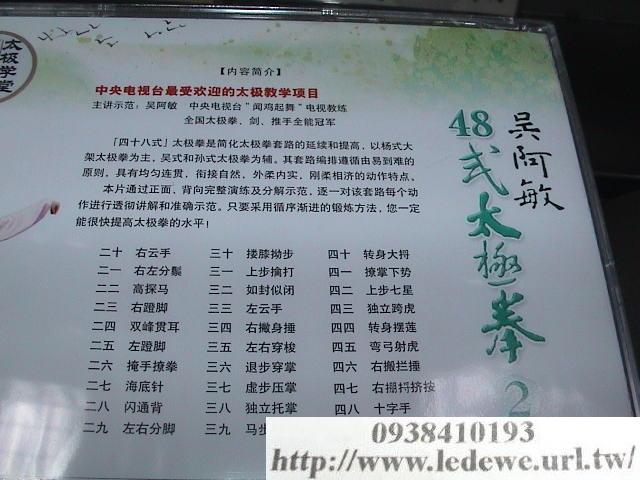 太极学堂
【内容简介】
中央电视台最受欢迎的太极教学项目
主讲示范：吴阿敏 中央电视台"闻鸡起舞"电视教练
全国太极拳、剑、推手全能冠军
「四十八式」太极拳是简化太极拳套路的延续和提高，以杨式大
架太极拳为主，吴式和孙式太极拳为辅。其套路编排遵循由易到难的
原则，具有均匀连贯，衔接自然，外柔内实，刚柔相济的动作特点。
本片通过正面、背向完整演练及分解示范，逐一对该套路每个动
作进行透彻讲解和准确示范。只要采用循序渐进的锻炼方法，您一定
能很快提高太极拳的水平！
二十 右云手 三十 搂膝拗步 四十 转身大捋
二一 右左分鬃 三一 上步擒打 四一 撩掌下势
二二 高探马 三二 如封似闭 四二 上步七星
二三 右蹬脚 三三 左云手 四三 独立跨虎
二四 双峰贯耳 三四 右撇身捶 四四 转身摆莲
二五 左蹬脚 三五 左右穿梭 四五 弯弓射虎
二六 掩手撩拳 三六 退步穿掌 四六 右搬拦捶
二七 海底针 三七 虚步压掌 四七 右掤捋挤按
二八 闪通背 三八 独立托掌 四八 十字手
二九 左右分脚 三九 马步
吴阿敏
48式太極拳 2
0938410193
http://www.ledewe.url.tw/